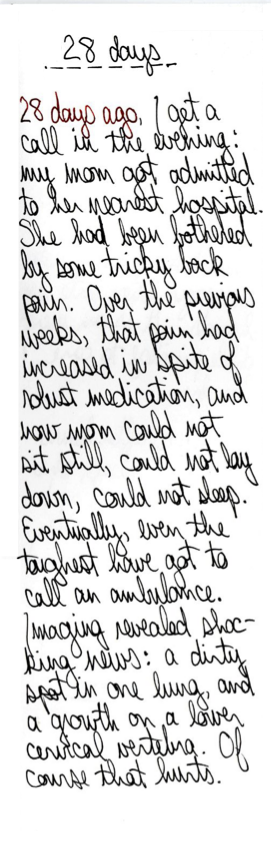 28 days
28 days ago, I get a
call in the evening:
my mom got admitted
to her nearest hospital.
She had been bothered
by some tricky back
pain. Over the previous
weeks, that pain had
increased in spite of
robust medication, and
now mom could not
sit still, could not lay
down, could not sleep.
Eventually, even the
toughest have got to
call an ambulance.
Imaging revealed shoc-
king news: a dirty
spot in one lung, and
a growth on a lower
cervical vertebra. Of
course that hurts.